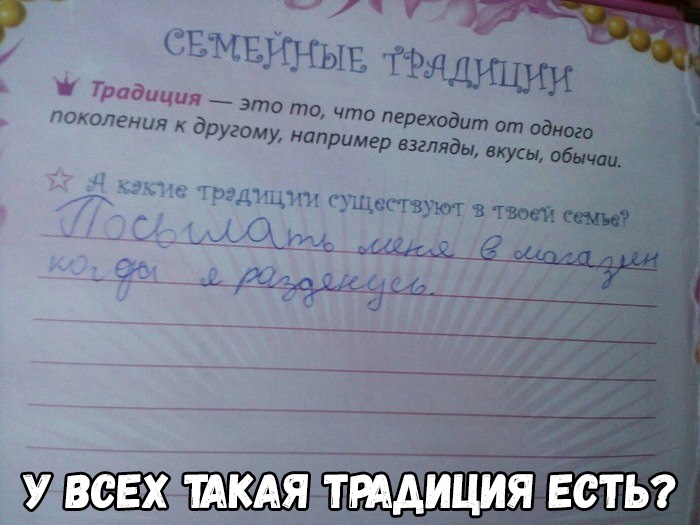 СЕМЕЙНЫЕ ТРАДИЦИИ
Традиция — это то, что переходит от одного
поколения к другому, например взгляды, вкусы, обычаи.
А какие традиции существуют в твоей семье?
Посылать меня в магазин
когда я разденусь.
У ВСЕХ ТАКАЯ ТРАДИЦИЯ ЕСТЬ?